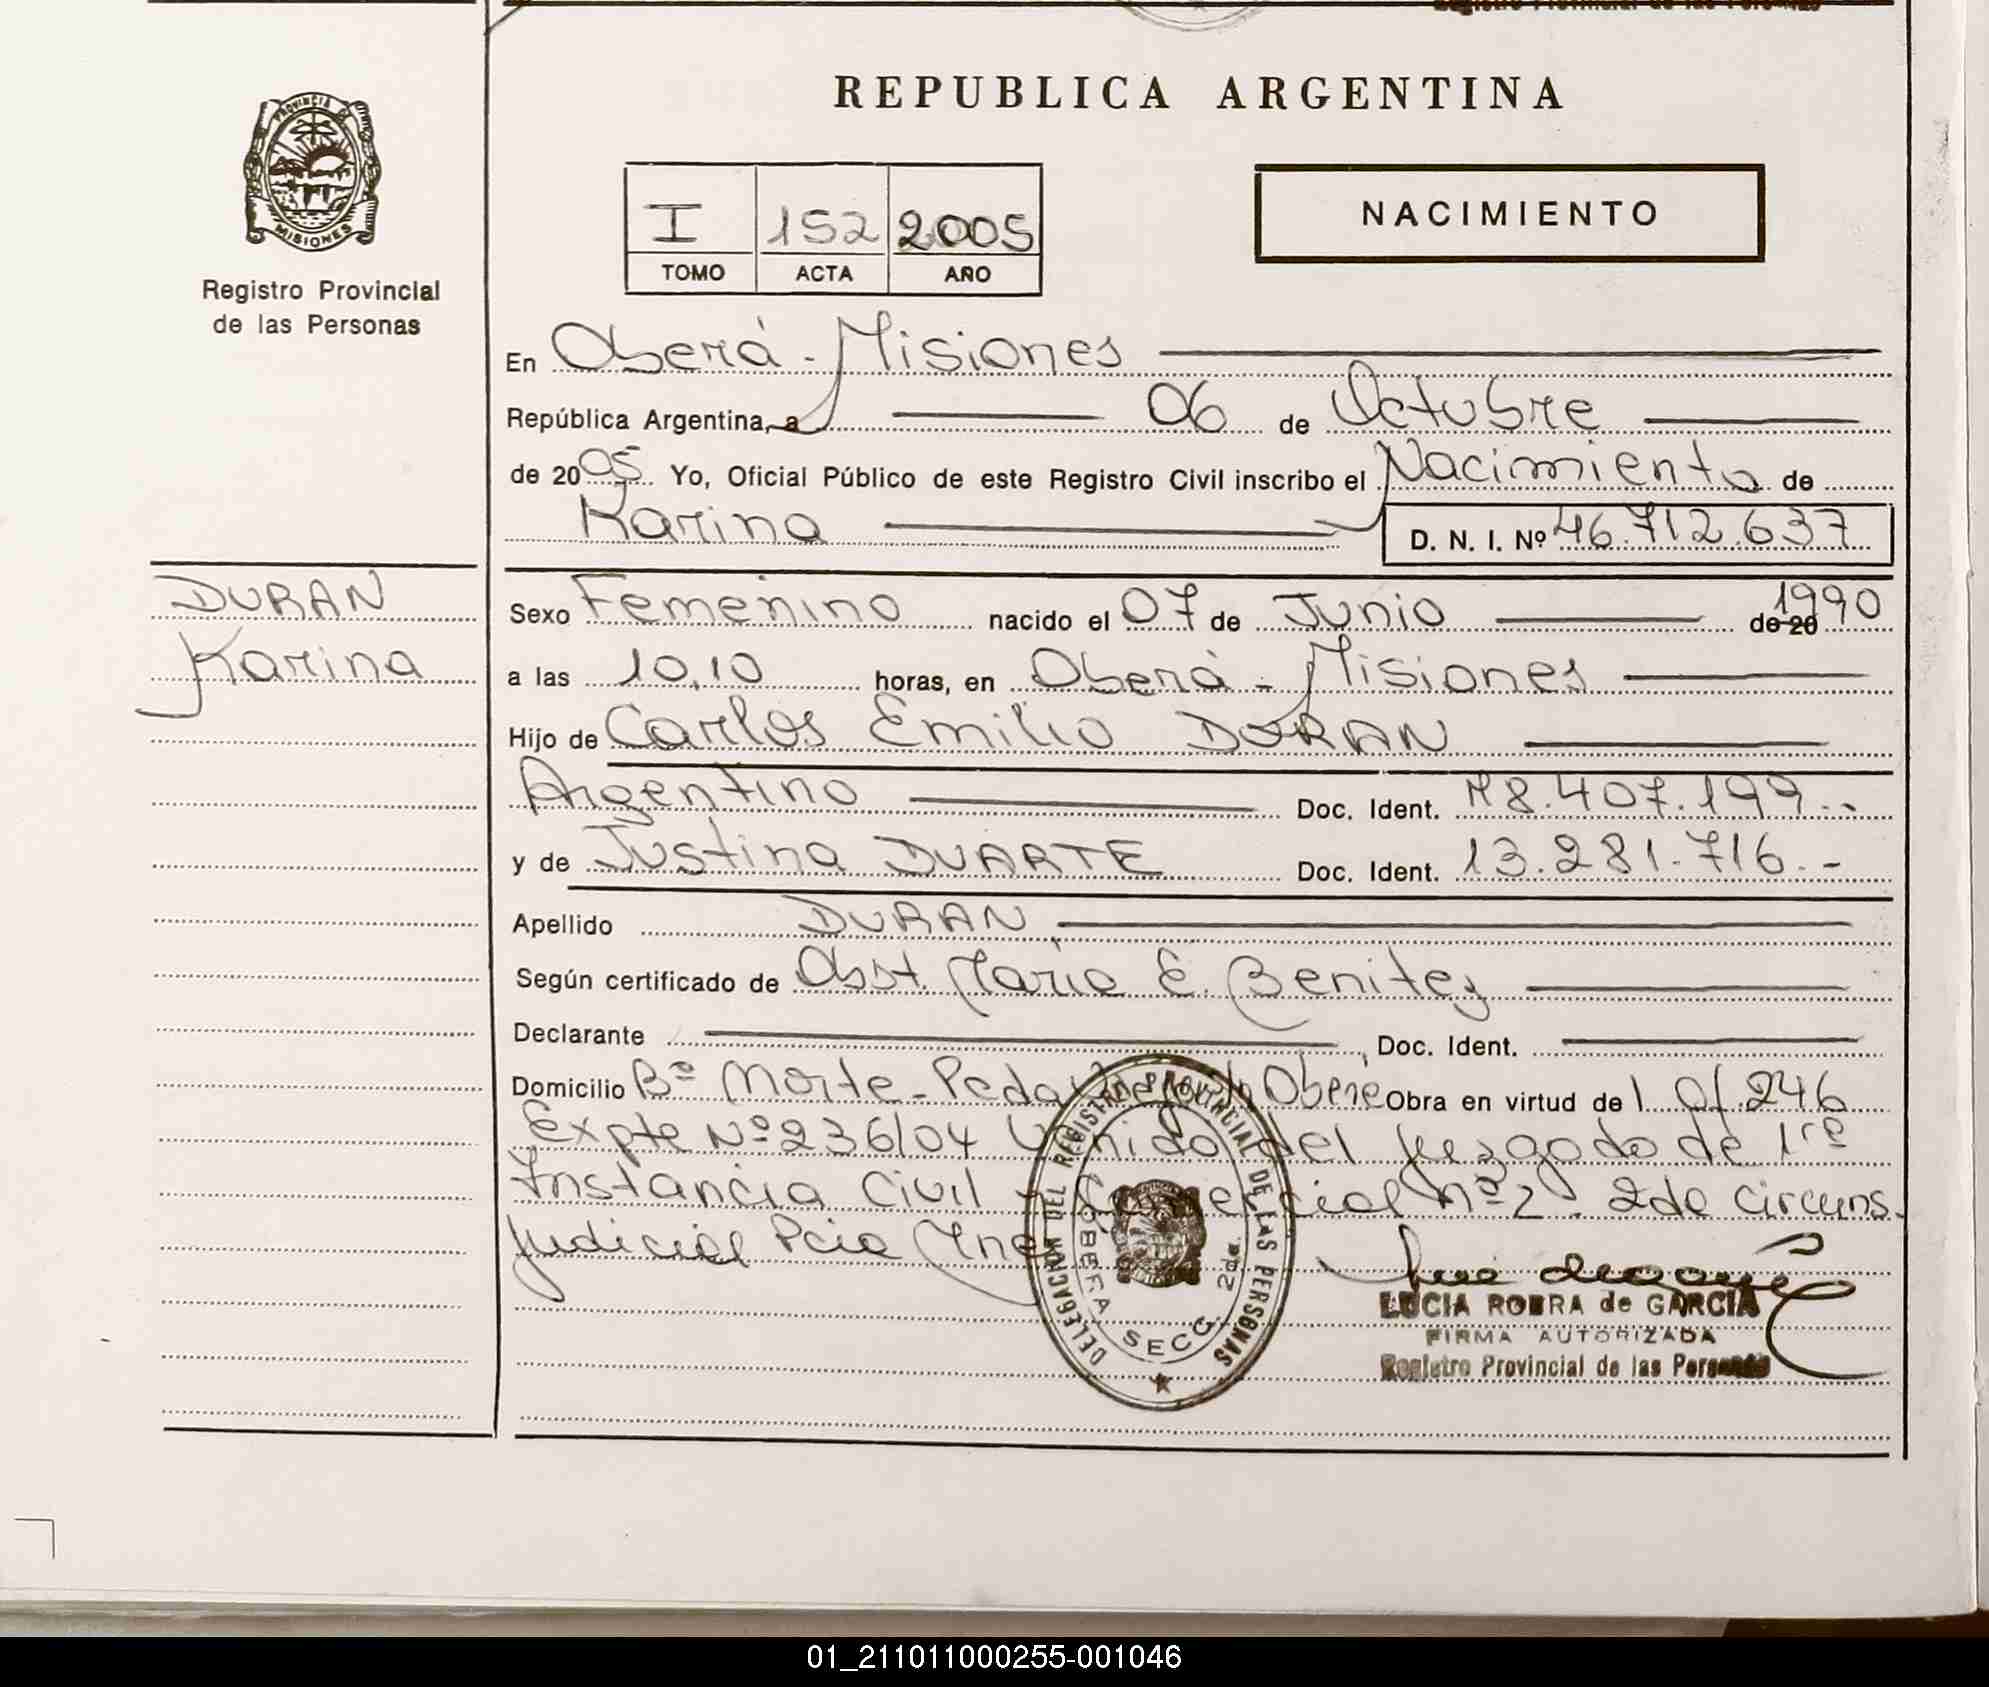 REPUBLICA ARGENTINA
PROVINCIA
MISIONES
Registro Provincial
de las Personas
I 152 2005
TOMO ACTA AÑO
NACIMIENTO
En Oberá - Misiones
República Argentina, a 06 de Octubre
de 2005 Yo, Oficial Público de este Registro Civil inscribo el Nacimiento de
Karina D. N. I. Nº 46.712.637
DURAN
Karina
Sexo Femenino nacido el 07 de Junio de 20 1990
a las 10,10 horas, en Oberá - Misiones
Hijo de Carlos Emilio DURAN
Argentino Doc. Ident. M8.407.199.-
y de Justina DUARTE Doc. Ident. 13.281.716.-
Apellido DURAN
Según certificado de Obst. Maria E. Benitez
Declarante , Doc. Ident.
Domicilio Bº Norte - Oberá Obra en virtud de l Of 246
Expte Nº 236/04 del Juzgado de 1ra
Instancia Civil y Comercial Nº 2. 2da Circuns.
Judicial Pcia Mnes
DELEGACION DEL REGISTRO PROVINCIAL DE LAS PERSONAS
OBERA SECC. 2da.
LUCIA ROBRA de GARCIA
FIRMA AUTORIZADA
Registro Provincial de las Personas
01_211011000255-001046